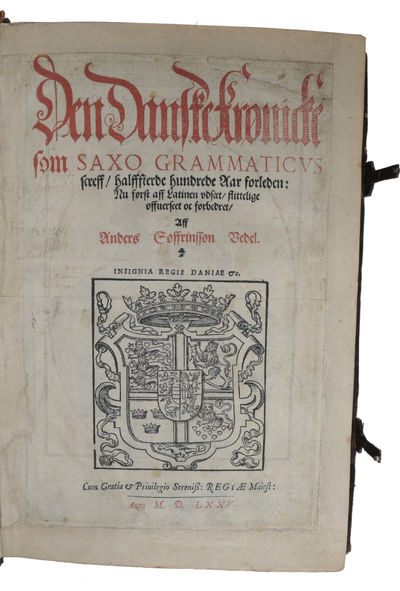 Den Danske Krønicke
som SAXO GRAMMATICVS
screff / halfffierde hundrede Aar forleden:
Nu først aff Latinen vdsæt / flittelige
offuerseet oc forbedret /
Aff
Anders Søffrinsson Vedel.
INSIGNIA REGIS DANIAE &c.
Cum Gratia & Priuilegio Sereniß: REGIÆ Maiest:
Anno M. D. LXXV